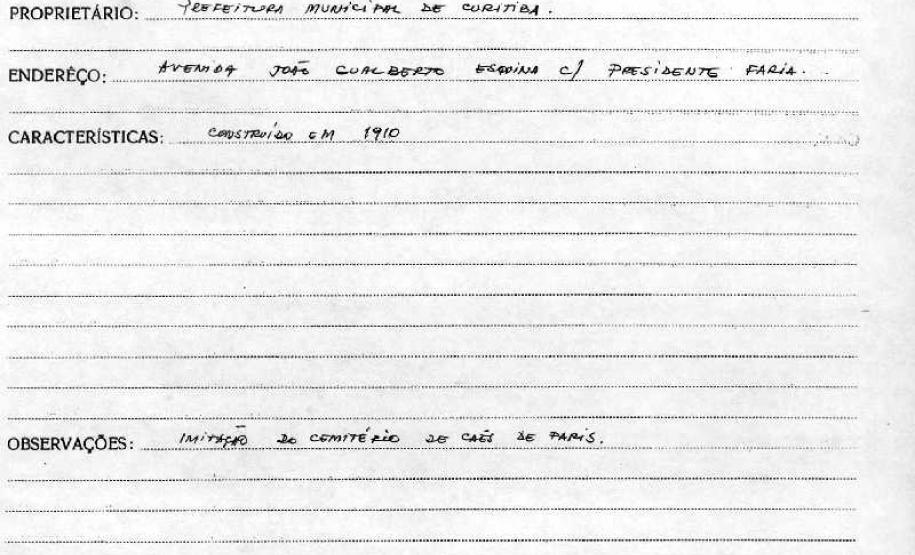 PROPRIETÁRIO: PREFEITURA MUNICIPAL DE CURITIBA.
ENDERÊÇO: AVENIDA JOÃO GUALBERTO ESQUINA C/ PRESIDENTE FARIA.
CARACTERÍSTICAS: CONSTRUÍDO EM 1910
OBSERVAÇÕES: IMITAÇÃO DO CEMITÉRIO DE CAẼS DE PARIS.